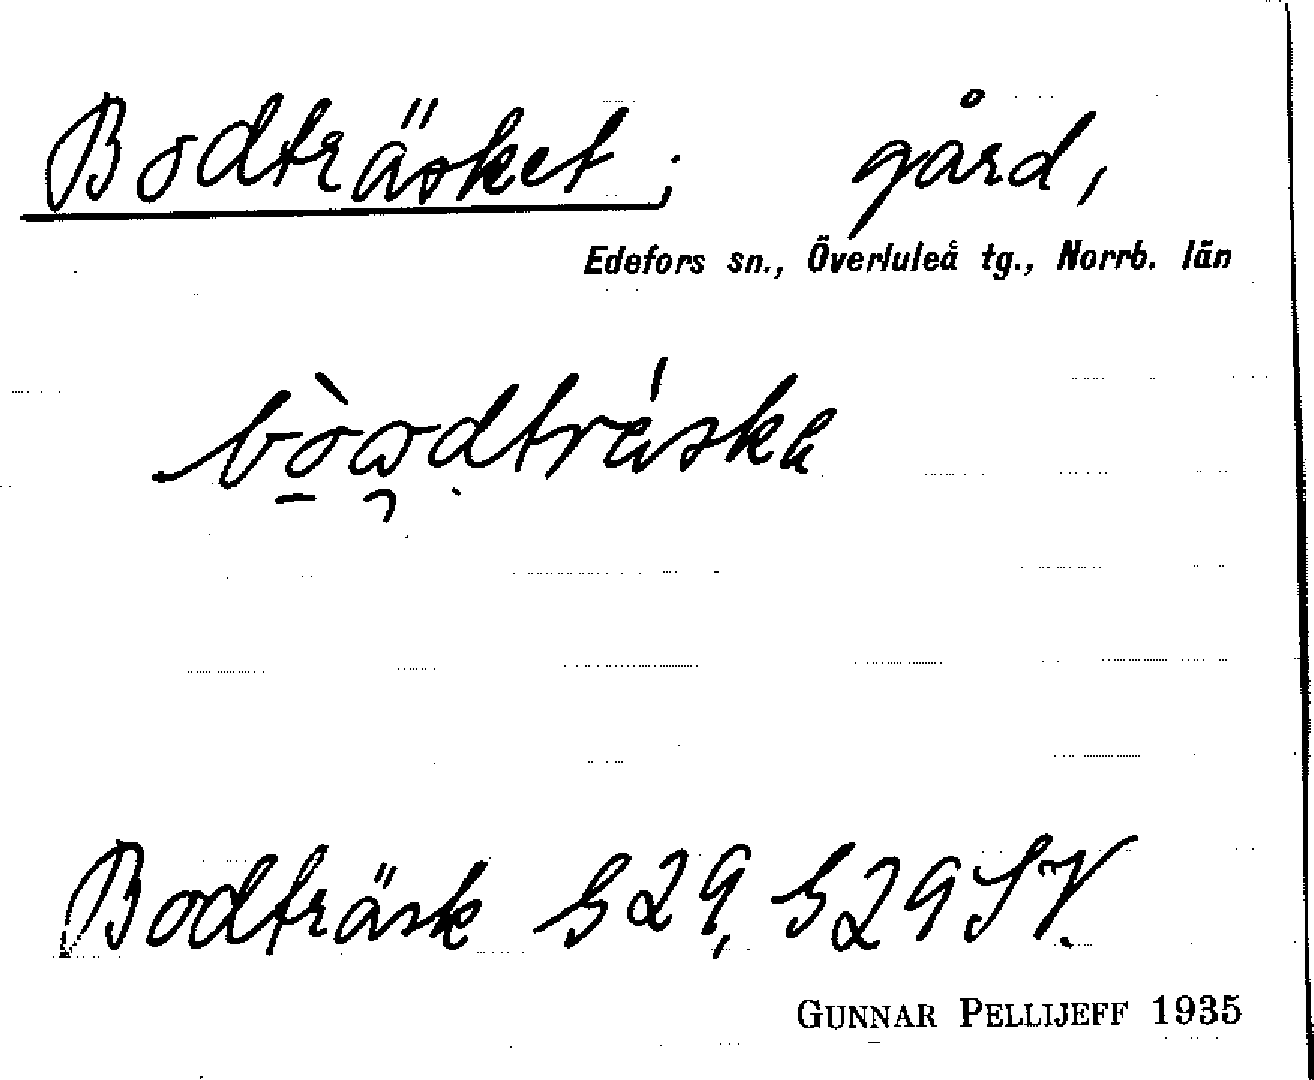 Bodträsket; gård,
Edefors sn., Överluleå tg., Norrb. län
Bodträsk S29, S29SV.
GUNNAR PELLIJEFF 1935